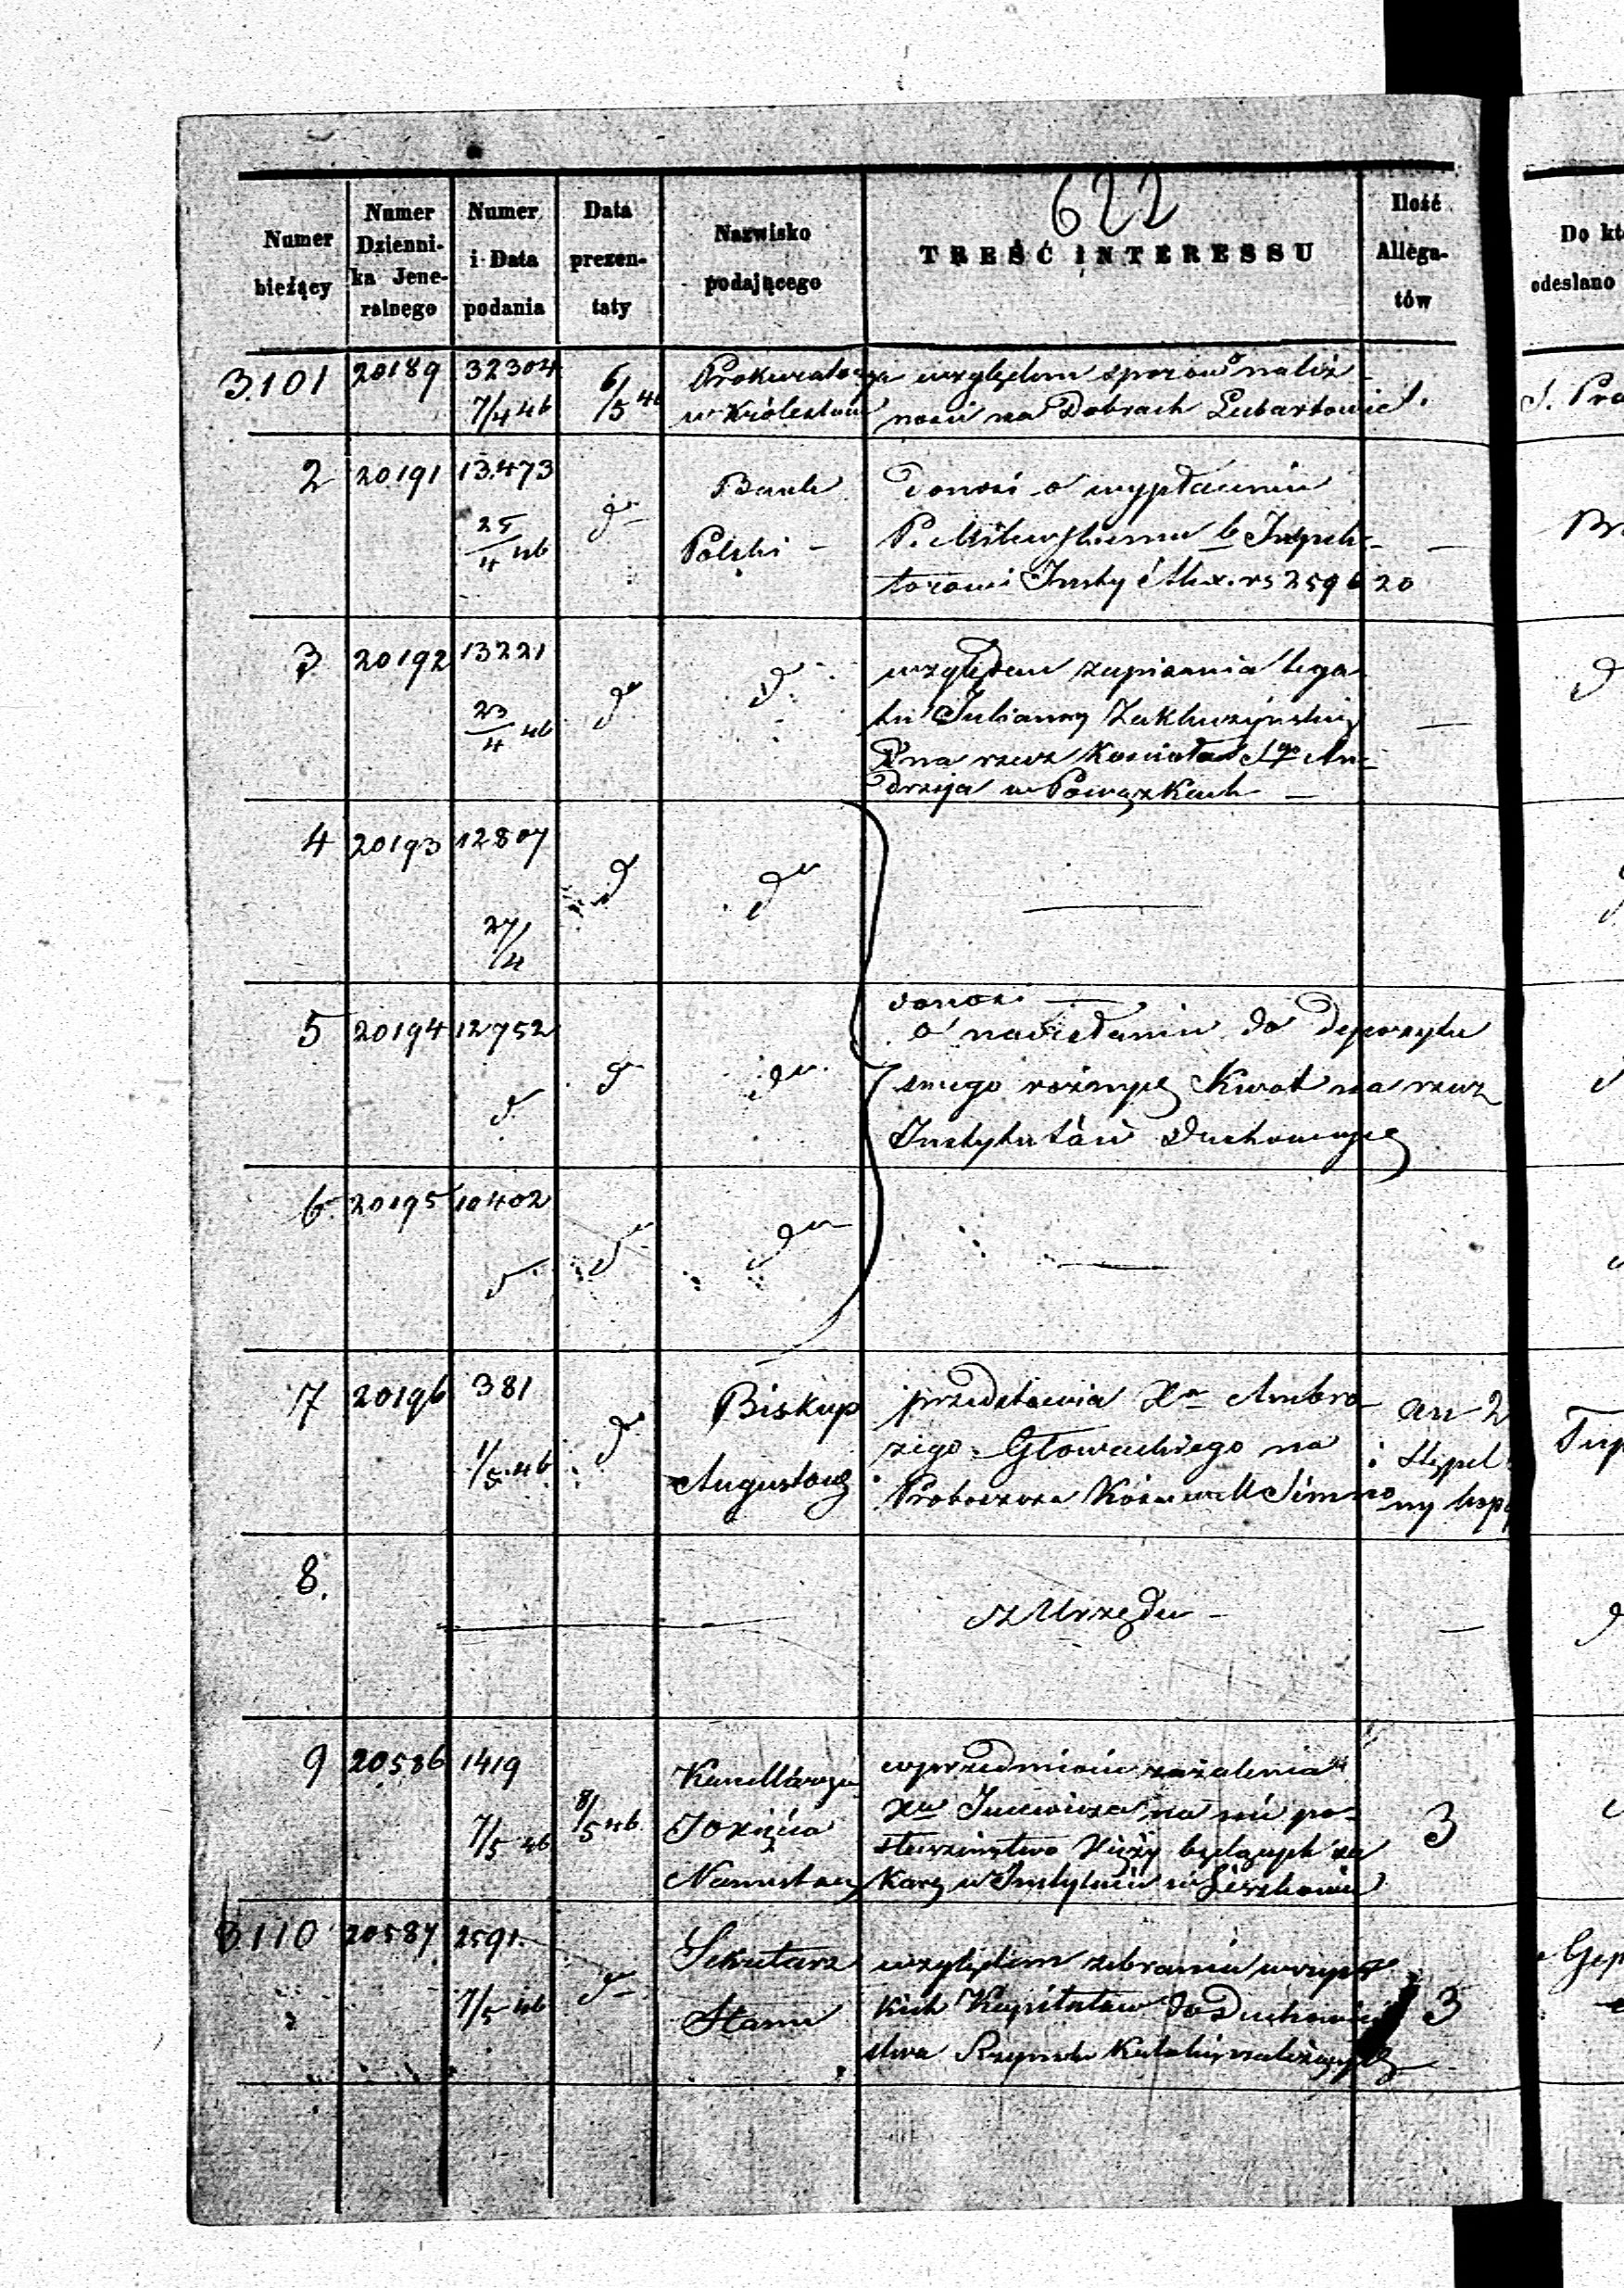 622
Numer
bieżący
Numer
Dzienni-
ka Jene-
ralnego
Numer
i Data
podania
Data
prezen-
taty
Nazwisko
podającego
TREŚĆ INTERESSU
Ilość
Allega-
tów
Do kt
odesłano
3.101 20189 32304 7/4 46 6/5 46
Prokuratorya
w Królestwie
względem sporów
na Dobrach Lubartowie 1.
2 20191 13.473 25/4 46 do
Bank
Polski -
donosi o wypłaceniu
P. Milewskiemu b Inspek-
torowi Insty rs 259 k 20
3 20192 13221 23/4 46 do do
względem zapisania lega-
tu Julianny
na rzecz Kościoła Sgo An-
drzeja w Powązkach -
4 20193 12807 27/4 do do
5 20194 12752 d do do
donosi
o nadesłaniu do depozytu
swego różnych Kwot na rzecz
Instytutów Duchownych
6. 20195 10402 d do do
7 20196 381 1/5 46 do
Biskup
Augustows
przedstawia Xa Ambro-
zego Głowackiego na
Proboszcza
an 2
i Stępel
8.
z Urzędu -
9 20586 1419 7/5 46 8/5 46
Kancellarya
JO Xięcia
Namiestnika
w przedmiocie zażalenia
Xa na nie po-
Xięży będących za
karę w Instytucie w Liszkowie
3
3.110 20587 2591. 7/5 46 do
Sekretarz
Stanu
względem zebrania wszyst
kich Kapitałów do Duchowień
stwa Rzymsko Katolic należących
3